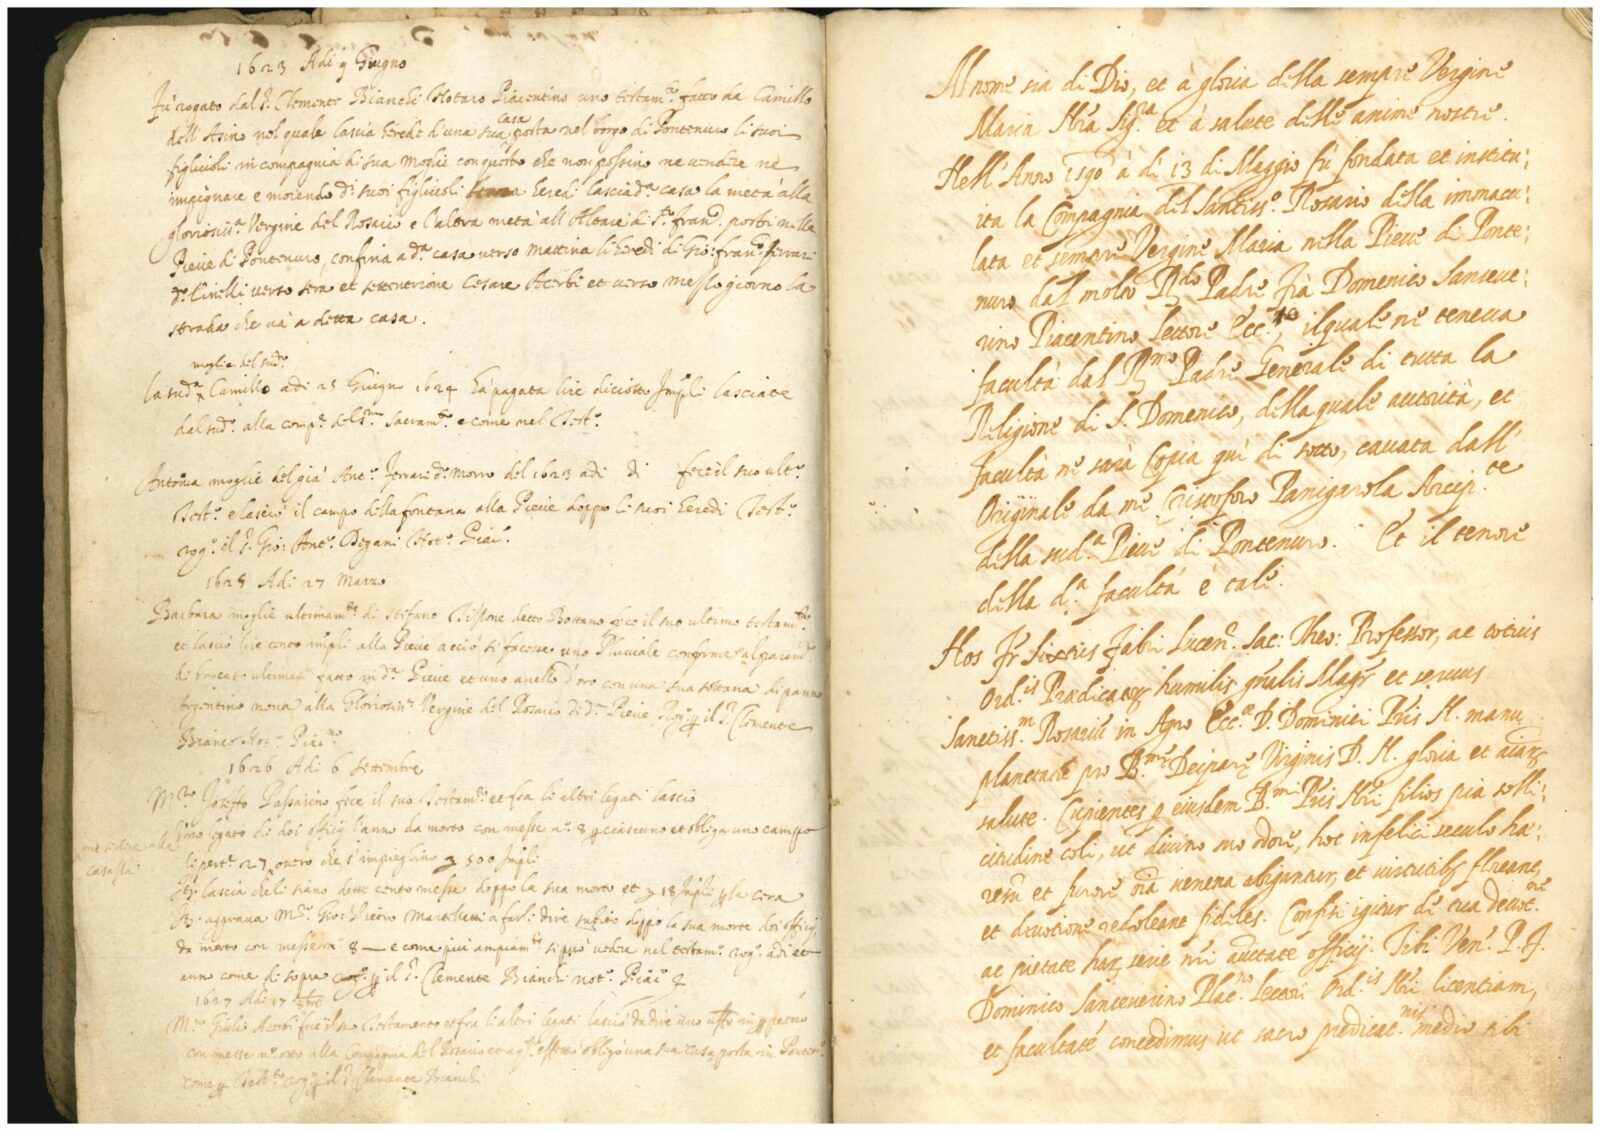 1623 Adi 9 Giugno
fu rogato dal S. Clemente Bianchi Notaro Piacentino uno testam.to fatto da Camillo
dell'Asino nel quale lascia herede d'una sua casa posta nel borgo di Pontenuro li suoi
figliuoli in compagnia di sua moglie con questo che non possino ne vendere ne
impegnare e morendo d.i suoi figliuoli senza heredi lascia d.a casa la metà alla
gloriosiss.a Vergine del Rosario e l'altra metà all'Altare di S.to Fran.co posti nella
Pieve di Pontenuro, confina a d.a casa verso mattina li heredi di Gio: fran.co ferrari
verso sera et settentrione Cesare Acerbi et verso mezzo giorno la
strada che va a detta casa.
moglie del sud.o
la sud.a Camillo adi 25 Giugn 1624 ha pagata lire diciotto Imp.li lasciate
dal sud.o alla comp.a del S.mo Sacram.to e come nel Test.o
Antonia moglie del già Ant.o ferrari d.o Morro del 1623 adi di fece il suo ult.o
Test.o e lasciò il campo della fontana alla Pieve doppo li suoi heredi Test.o
rog.o il S. Gio: Ant.o Not.o Piac.no
1625 Adi 27 Marzo
Barbara moglie ultimam.te di Stefano detto Bossano fece il suo ultimo testam.to
et lasciò lire cento imp.li alla Pieve acciò si facesse uno Pluviale conforme al
di brocato ultimam.te fatto in d.a Pieve et uno anello d'oro con una sua sottana di panno
Argentino nova alla Gloriosiss.a Vergine del Rosario di d.a Pieve Rog.o il S. Clemente
Bianco Not.o Piac.no
1626 Adi 6 settembre
M.ro Josefto Passarino fece il suo Testam.to et fra li altri legati lasciò
Uno legato di doi officij l'anno da morto con messe n.o 8 per ciascuno et obliga uno campo
di pert.e 27, overo che s'impieghino 500 Imp.li
It. lascia che li siano dette cento messe doppo la sua morte et 18 Imp.li per la cera
It. aggrava M.ro Gio: Pietro Marchetti a farli dire subito doppo la sua morte doi officij
da morto con messe n. 8 — e come più ampiam.te si può vedere nel testam.o rog.o adi et
anno come di sopra rog.o per il S. Clemente Bianchi not.o Piac.o
1627 Adi 17
M.ro Giulio Acerbi fece il suo Testamento et fra li altri legati lasciò da dire uno uff.o in perpetuo
con messe n.o otto alla Compagnia del Rosario et a q.o effetto obligò una sua casa posta in Ponten.o
come per Test.to rog.o per il S. Clemente Bianchi
Al nome sia di Dio, et à gloria della sempre Vergine
Maria Nra Sig.ra et à salute delle anime nostre.
Nell'Anno 1590 à di 13 di Maggio fù fondata et institu:
ita la Compagnia del Santiss.o Rosario della immacu:
lata et sempre Vergine Maria nella Pieve di Ponte:
nuro dal molto R.do Padre frà Domenico Sanseve:
rino Piacentino Lettore Ecc.mo, il quale ne teneva
facultà dal R.mo Padre Generale di tutta la
Religione di S. Domenico, della quale autorità, et
facultà ne sarà Copia quì di sotto, cavata dall'
Originale da me Cristoforo Panigarola Arcip.te
della sud.a Pieve di Pontenuro. Et il tenore
della d.a facultà è tale.
Nos Fr Sixtus Fabri Lucen. Sac: Theo: Professor, ac totius
Ord.is Prædicator humilis gnalis Magr et servus
Sanctiss.m Rosariũ in Agro Ecc.æ D. Dominici Pris N. manu
plantatũ pro B.mæ Deiparę Virginis D. N. gloria et aiarũ
salute. Cupientes p eiusdem B.mi Pris Nri filios pia solli:
citudine coli, ut divino suo odore, hoc infelici seculo ha:
resũ et furore oia venena abigantur, et virtutibs floreant,
et devotione redoleant fideles. Confisi igitur de tua devot.ne
ac pietate har serie nri auctate officij. Tibi Ven. P. F.
Dominico Sanceverino Plac.no Lectori Ord.is Nri licentiam,
et facultatẽ concedimus ut sacro predicat.nis medio tibi